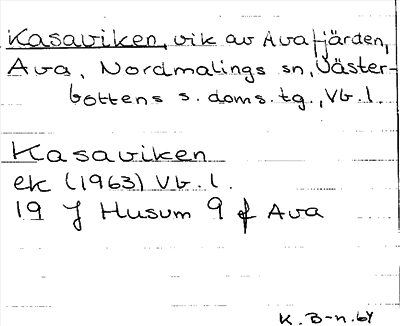 Kasaviken, vik av Avafjärden,
Ava, Nordmalings sn, Väster-
bottens s. doms. tg., Vb. l.
Kasaviken
ek (1963) Vb. l.
19 J Husum 9 f Ava
K. B-n. 64